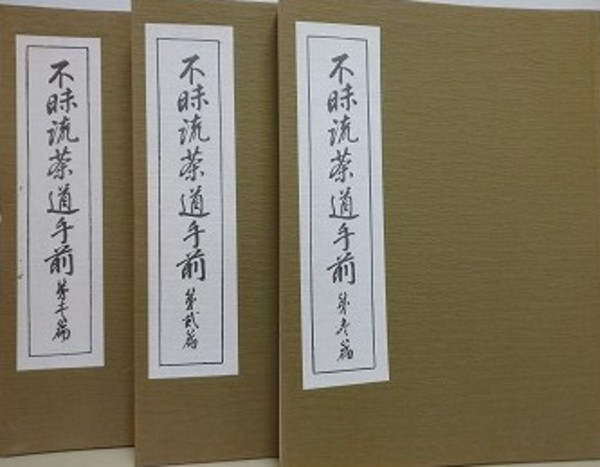 不昧流茶道手前 第篇
不昧流茶道手前 第弐篇
不昧流茶道手前 第篇